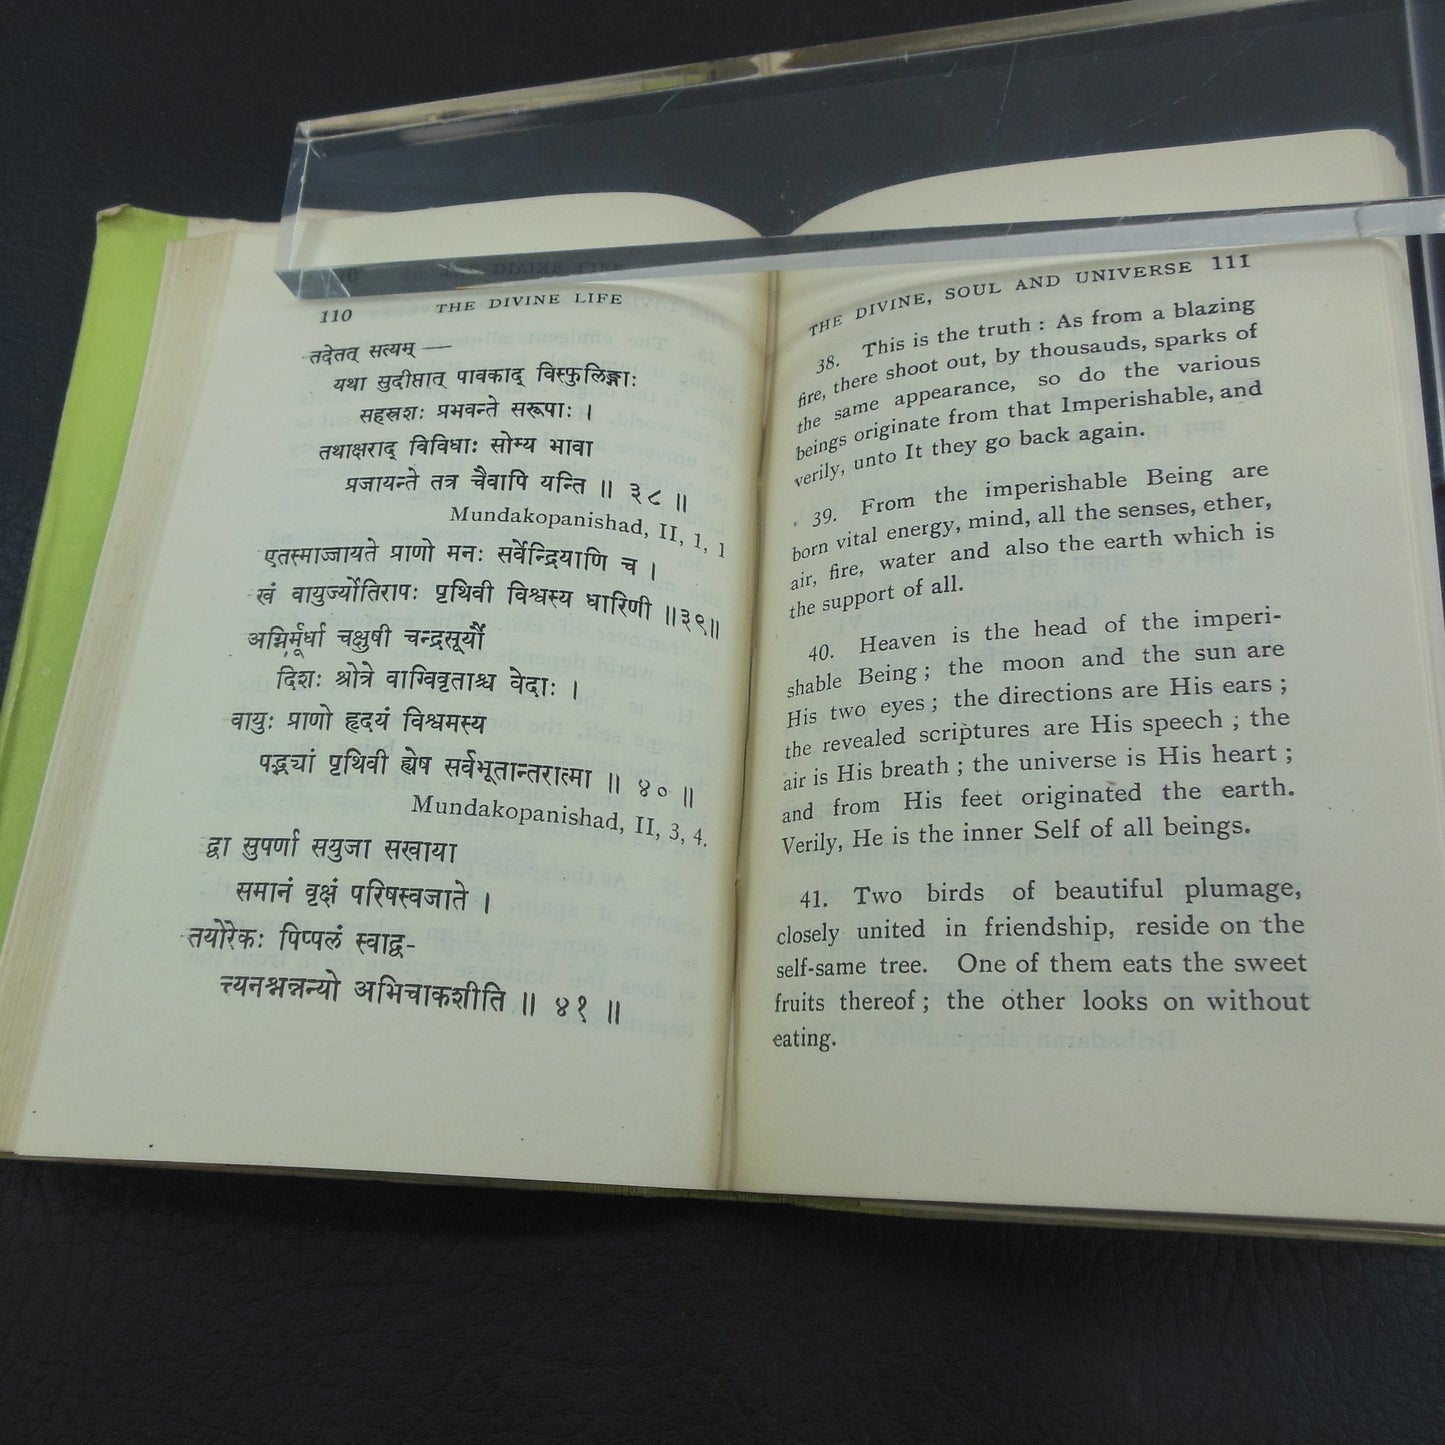 110 THE DIVINE LIFE
तदेतत् सत्यम् —
यथा सुदीप्तात् पावकाद् विस्फुलिङ्गाः
सहस्रशः प्रभवन्ते सरूपाः ।
तथाक्षराद् विविधाः सोम्य भावा
प्रजायन्ते तत्र चैवापि यन्ति ॥ ३८ ॥
Mundakopanishad, II, 1, 1
एतस्माज्जायते प्राणो मनः सर्वेन्द्रियाणि च ।
खं वायुर्ज्योतिरापः पृथिवी विश्वस्य धारिणी ॥३९॥
अग्निर्मूर्धा चक्षुषी चन्द्रसूर्यौ
दिशः श्रोत्रे वाग्विवृताश्च वेदाः ।
वायुः प्राणो हृदयं विश्वमस्य
पद्भ्यां पृथिवी ह्येष सर्वभूतान्तरात्मा ॥ ४० ॥
Mundakopanishad, II, 3, 4.
द्वा सुपर्णा सयुजा सखाया
समानं वृक्षं परिषस्वजाते ।
तयोरेकः पिप्पलं स्वाद्व-
त्त्यनश्नन्नन्यो अभिचाकशीति ॥ ४१ ॥
THE DIVINE, SOUL AND UNIVERSE 111
38. This is the truth : As from a blazing
fire, there shoot out, by thousauds, sparks of
the same appearance, so do the various
beings originate from that Imperishable, and
verily, unto It they go back again.
39. From the imperishable Being are
born vital energy, mind, all the senses, ether,
air, fire, water and also the earth which is
the support of all.
40. Heaven is the head of the imperi-
shable Being ; the moon and the sun are
His two eyes ; the directions are His ears ;
the revealed scriptures are His speech ; the
air is His breath ; the universe is His heart ;
and from His feet originated the earth.
Verily, He is the inner Self of all beings.
41. Two birds of beautiful plumage,
closely united in friendship, reside on the
self-same tree. One of them eats the sweet
fruits thereof ; the other looks on without
eating.